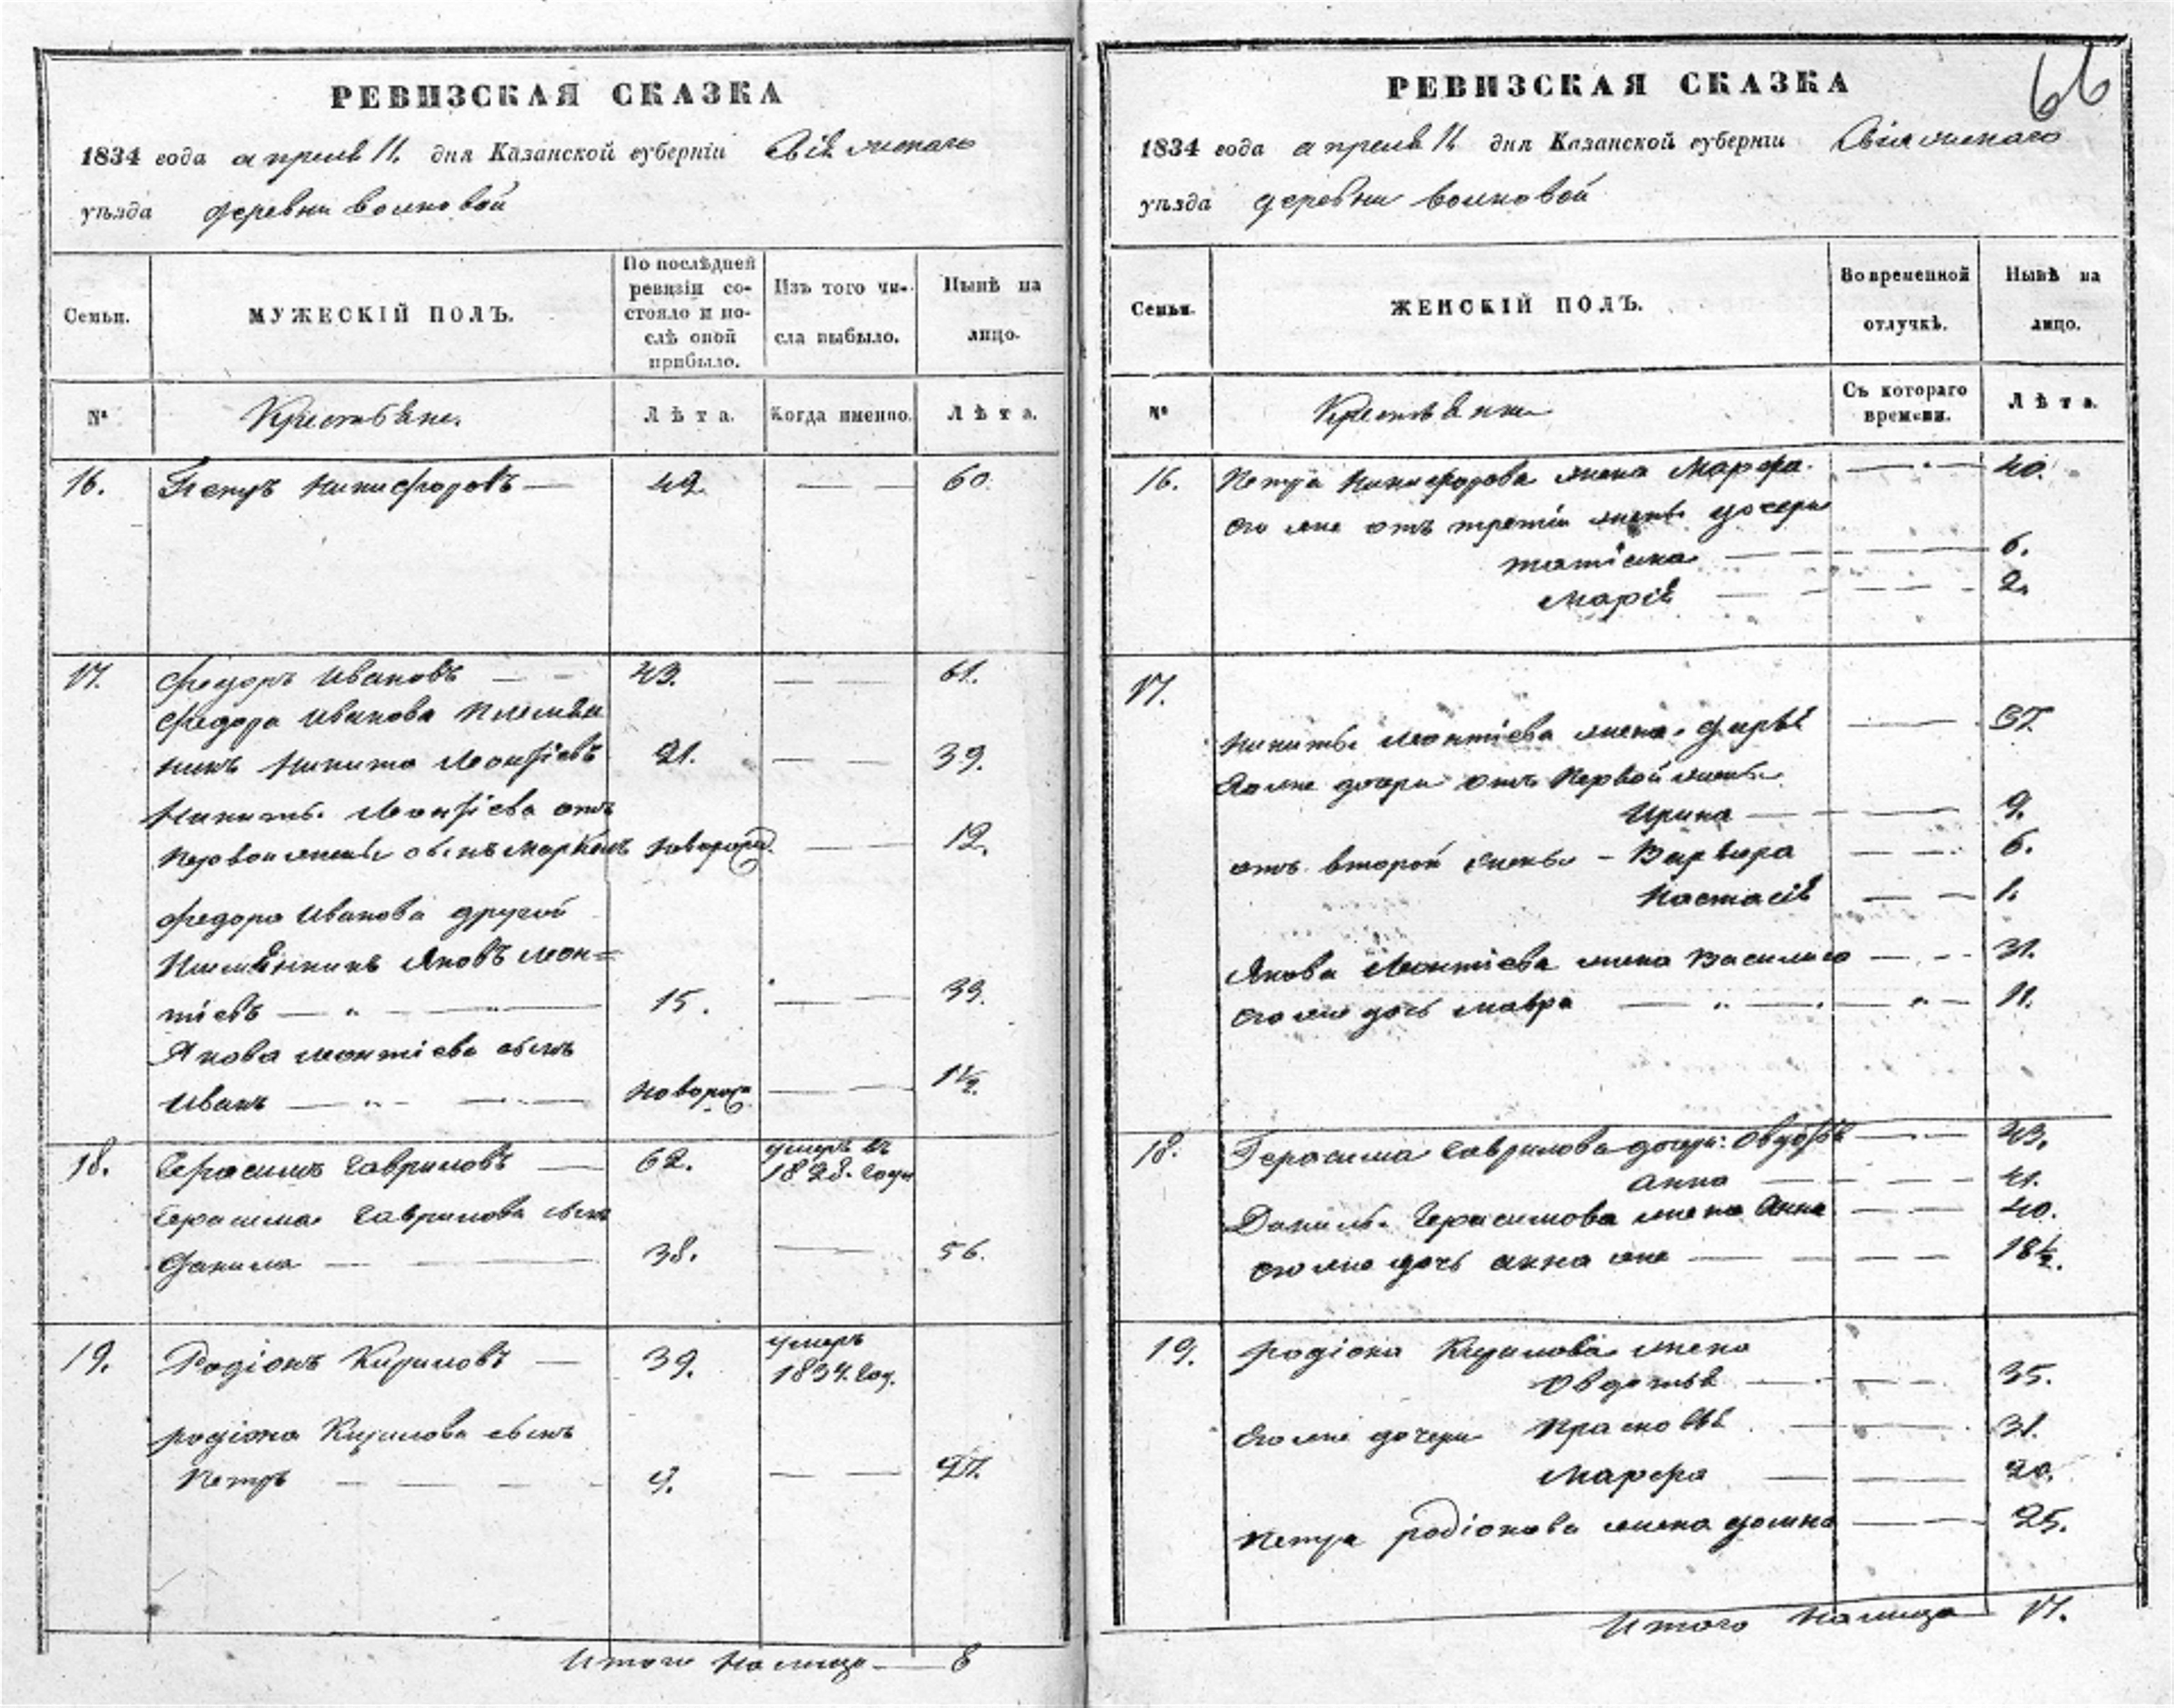 РЕВИЗСКАЯ СКАЗКА
1834 года апреля 11. дня Казанской губерніи Свіяжскаго
уѣзда деревни Волковой
Семьи.
МУЖЕСКІЙ ПОЛЪ.
По послѣдней
ревизіи со-
стояло и по-
слѣ оной
прибыло.
Изъ того чи-
сла выбыло.
Нынѣ на
лицо.
№
Крестьяне.
Лѣта.
Когда именно.
Лѣта.
16. Петръ Никифоровъ — 42. — — 60.
17. Федоръ Ивановъ — — 43. — — 61.
Федора Иванова племян
никъ Никита Леонтіевъ 21. — — 39.
Никиты Леонтіева отъ
первой жены сынъ Маркелъ новорож. — 12.
Федора Иванова другой
племянникъ Яковъ Леон=
тіевъ — „ — „ — 15. — — 33.
Якова Леонтіева сынъ
Иванъ — „ — — новорож. — — 1½.
18. Герасимъ Гавриловъ — 62. умеръ въ
1828. году
Герасима Гаврилова сынъ
Данила — — 38. — 56.
19. Родіонъ Кириловъ — 39. умеръ
1834. год.
родіона Кирилова сынъ
Петръ — — — — 9. — — 27.
Итого налицо — 8
66
РЕВИЗСКАЯ СКАЗКА
1834 года апреля 11. дня Казанской губерніи Свіяжскаго
уѣзда деревни Волковой
Семьи.
ЖЕНСКІЙ ПОЛЪ.
Во временной
отлучкѣ.
Нынѣ на
лицо.
№
Крестьянки
Съ котораго
времени.
Лѣта.
16. Петра Никифорова жена Марфа. — 40.
его же отъ третій жены дочери
татіана — — — 6.
Марія — — — 2.
17.
Никиты Леонтіева жена Дарья — 37.
его же дочери отъ первой жены
Ирина — — — 9.
отъ второй жены - Варвара — — 6.
Настасія — — 1.
Якова Леонтіева жена Василиса — — 31.
его же дочь мавра — „ — „ — 11.
18. Герасима Гаврилова дочери: Овдотья — — 43.
Анна — — — 41.
Данилы Герасимова жена Анна — — 40.
его же дочь анна же — — — 18½.
19. родіона Кирилова жена
Овдотья — — — 55.
его же дочери Прасковья — — 31.
Марфа — — — 20.
Петра родіонова жена домна — — 25.
Итого налицо — 17.